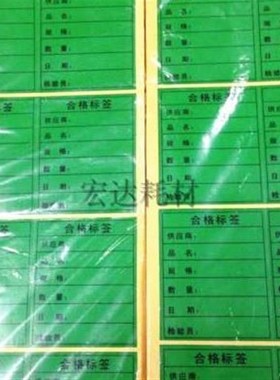 供应商:
品 名:
规 格:
数 量:
日 期:
检验员:
品 名:
规 格:
数 量:
日 期:
检验员:
合格标签
供应商:
品 名:
规 格:
数 量:
日 期:
检验员:
合格标签
供应商:
品 名:
规 格:
数 量:
日 期:
检验员:
宏达耗材
合格标签
供应商:
规 格:
数 量:
日 期:
检验员:
合格标签
供应商:
品 名:
规 格:
数 量:
日 期:
检验员:
合格标签
合格标签
供应商: